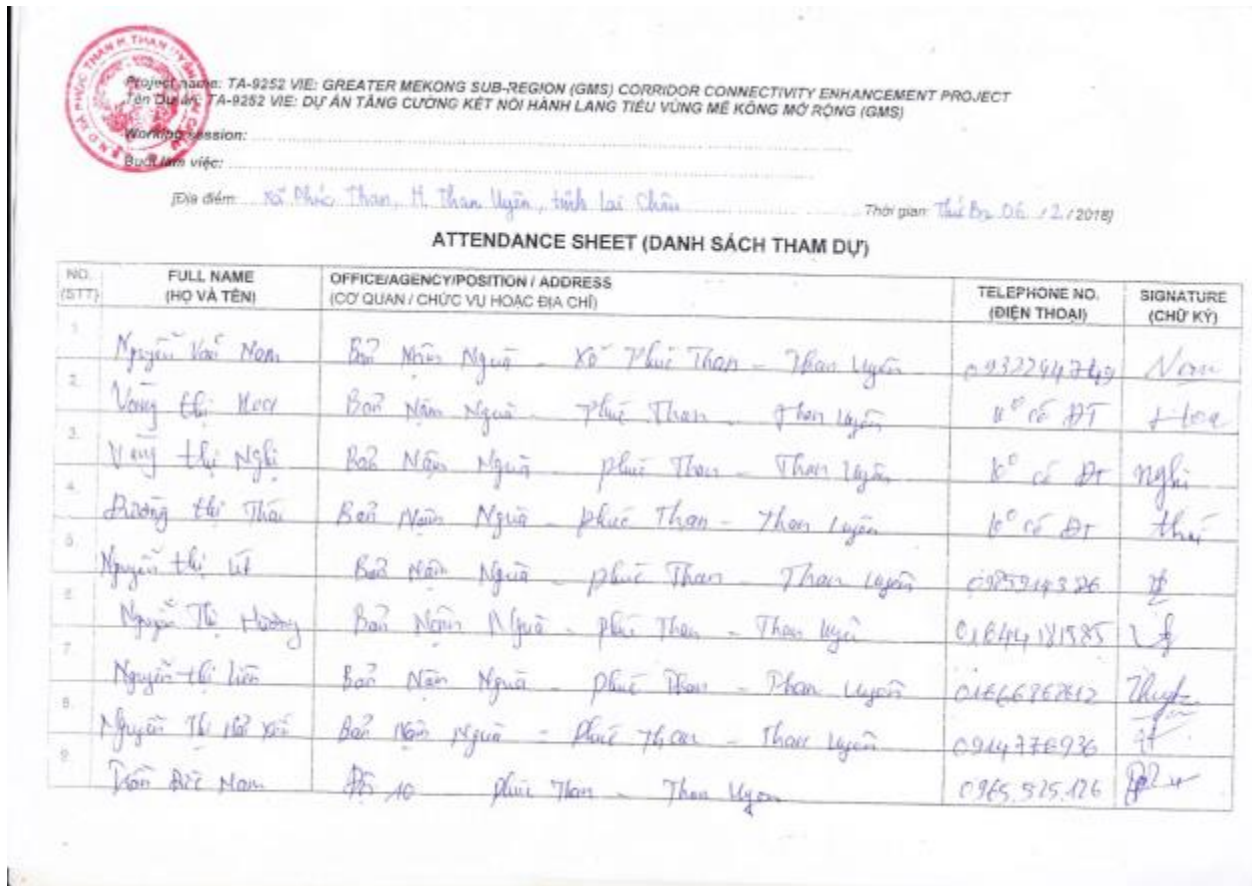 Project name: TA-9252 VIE: GREATER MEKONG SUB-REGION (GMS) CORRIDOR CONNECTIVITY ENHANCEMENT PROJECT
Tên Dự án: TA-9252 VIE: DỰ ÁN TĂNG CƯỜNG KẾT NỐI HÀNH LANG TIỂU VÙNG MÊ KÔNG MỞ RỘNG (GMS)
Working session:
Buổi làm việc:
[Địa điểm: Xã Phúc Than, H. Than Uyên, tỉnh Lai Châu Thời gian: Thứ Ba 06 / 2 / 2018]
ATTENDANCE SHEET (DANH SÁCH THAM DỰ)
NO. (STT) FULL NAME (HỌ VÀ TÊN) OFFICE/AGENCY/POSITION / ADDRESS (CƠ QUAN / CHỨC VỤ HOẶC ĐỊA CHỈ) TELEPHONE NO. (ĐIỆN THOẠI) SIGNATURE (CHỮ KÝ)
1. Nguyễn Văn Nam Bản Nậm Ngùa - Xã Phúc Than - Than Uyên Nam
2. Vàng thị Hoa Bản Nậm Ngùa - Phúc Than - Than Uyên k° có ĐT Hoa
3. Vàng thị Nghị Bản Nậm Ngùa - Phúc Than - Than Uyên k° có ĐT nghị
4. thị Bản Nậm Ngùa - Phúc Than - Than Uyên k° có ĐT
5. Nguyễn thị út Bản Nậm Ngùa - Phúc Than - Than Uyên
6. Nguyễn Thị Hường Bản Nậm Ngùa - Phúc Than - Than Uyên 01644181585
7. Nguyễn thị liên Bản Nậm Ngùa - Phúc Than - Than Uyên
8. Nguyễn Thị Bản Nậm Ngùa - Phúc Than - Than Uyên 0914776936
9. Nam 10 Phúc Than - Than Uyên 0965.525.126